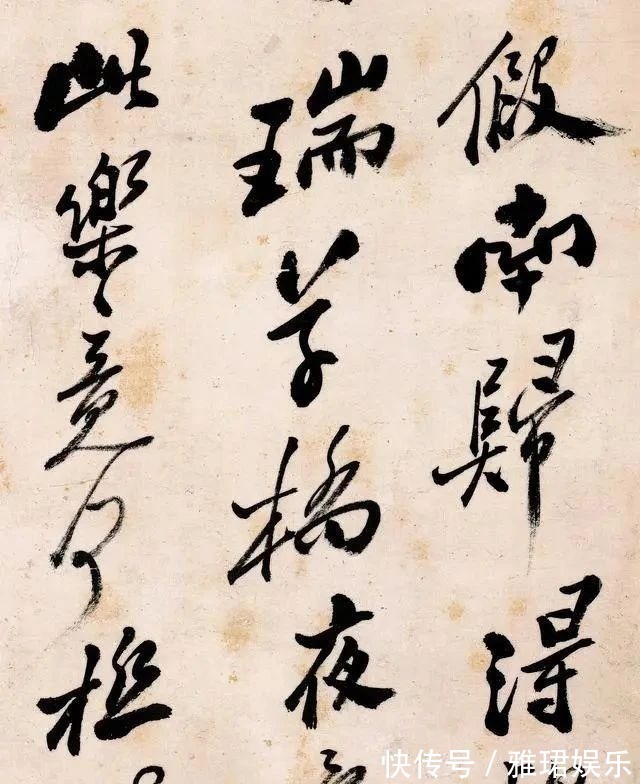 假南歸得
瑞草橋夜
此樂竟何極
快传号 / 雅珺娱乐